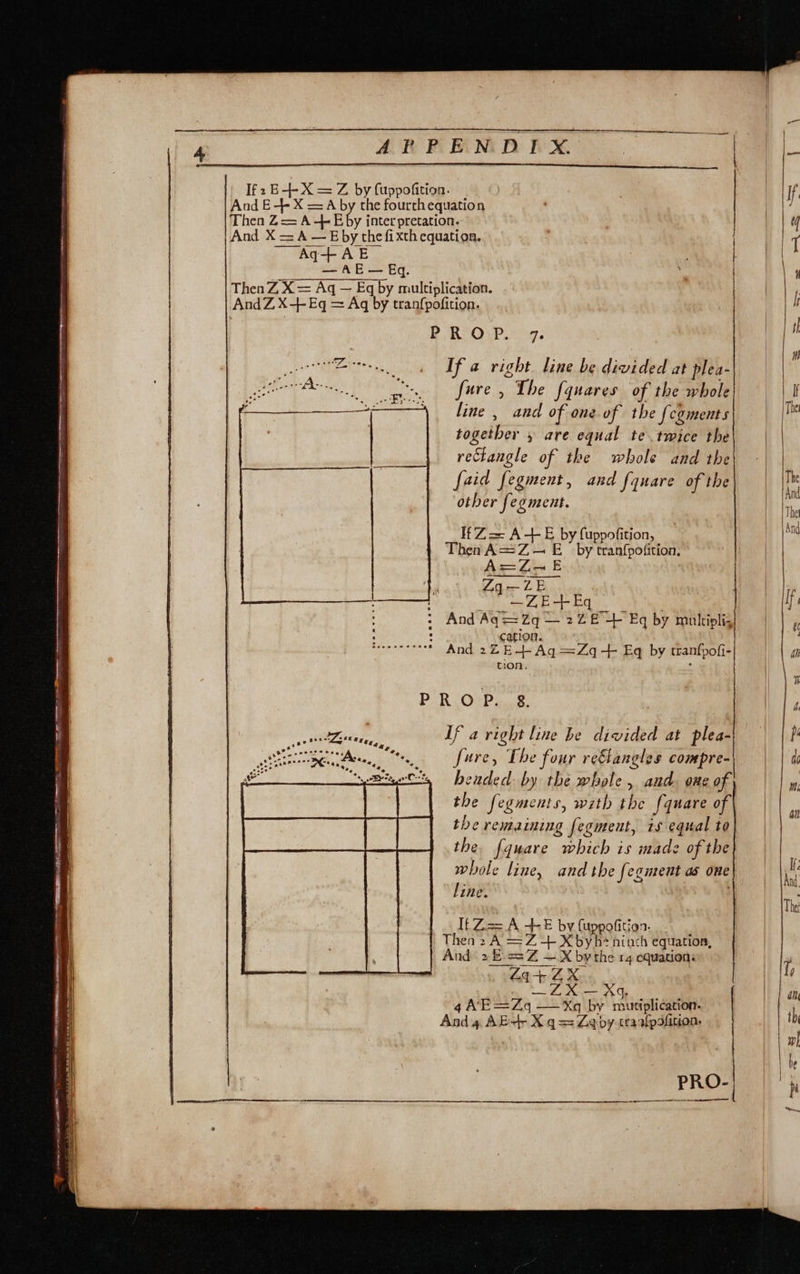 4 APPENDIX.
If 2 E + X = Z by ſuppoſition.
And E + X = A by the fourth equation
Then Z = A + E by interpretation.
And X = A — E by the ſixth equation.
Aq + A E
— A E — Eq.
Then Z X = Aq — Eq by multiplication.
And Z X + Eq = Aq by tranſpoſition.
PROP. 7.
Z
A
E
If a right line be divided at plea-
ſure, The ſquares of the whole
line, and of one of the ſegments
together, are equal to twice the
rectangle of the whole and the
ſaid ſegment, and ſquare of the
other ſegment.
If Z = A + E by ſuppoſition,
Then A = Z — E by tranſpoſition.
A = Z — E
Zq — Z E
— Z E + Eq
And Aq = Zq — 2 Z E + Eq by multipli-
cation.
And 2 Z E + Aq = Zq + Eq by tranſpoſi-
tion.
PROP. 8.
Z
A
X
If a right line be divided at plea-
ſure, The four rectangles compre-
hended by the whole, and one of
the ſegments, with the ſquare of
the remaining ſegment, is equal to
the ſquare which is made of the
whole line, and the ſegment as one
line.
If Z = A + E by ſuppoſition.
Then 2 A = Z + X by he ninth equation,
And 2 E = Z — X by the 14 equation.
Zq + Z X
— Z X — Xq.
4 A E = Zq — Xq by mutiplication.
And 4 A E + X q = Zq by tranſpoſition.
PRO-